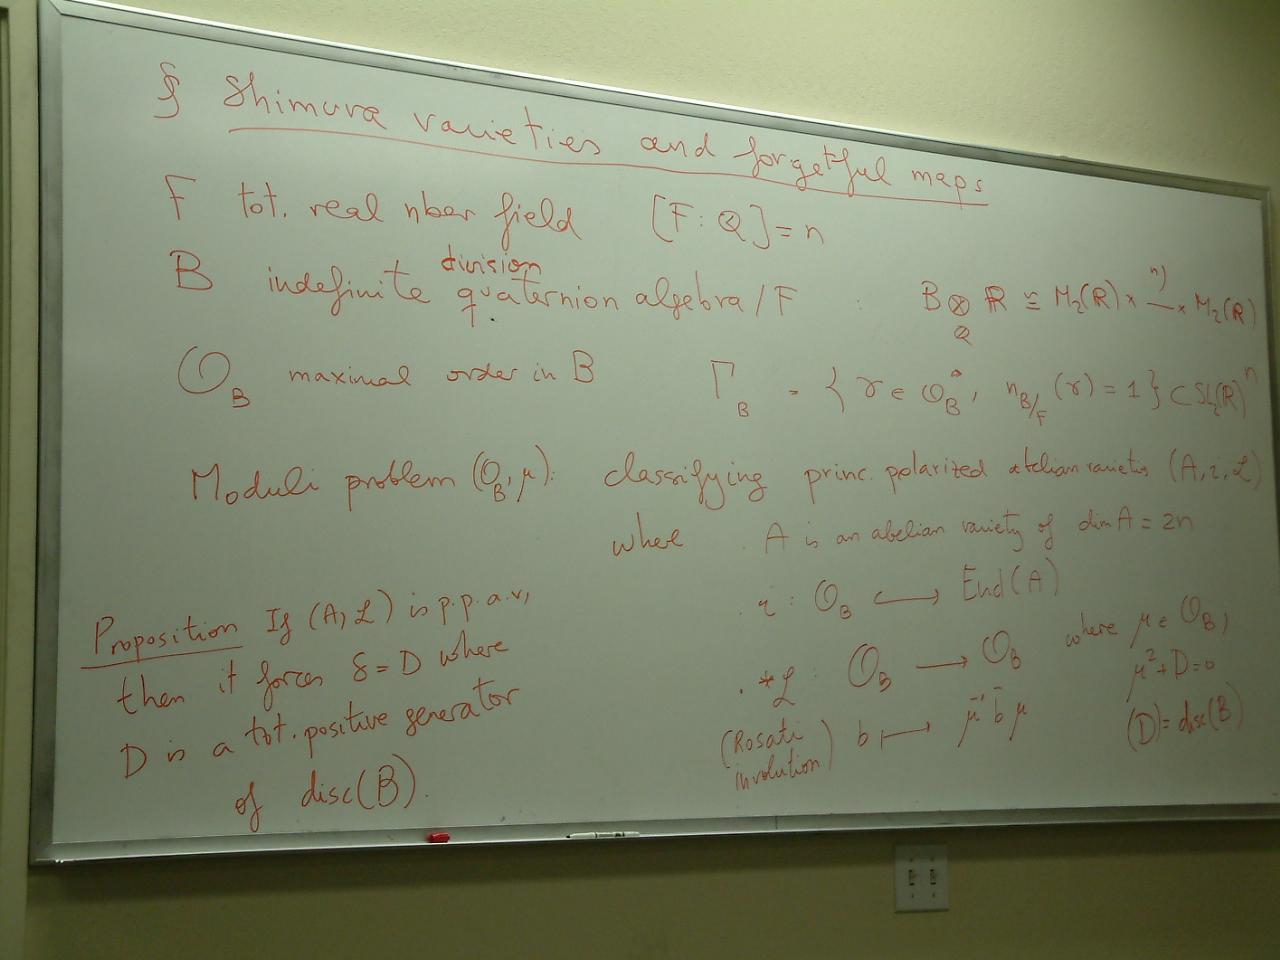 § Shimura varieties and forgetful maps
F tot. real nber field [F:Q]=n
B indefinite division quaternion algebra/F : B⊗_Q R ≅ M₂(R)× n) ×M₂(R)
O_B maximal order in B Γ_B = {γ∈O_B^*, n_{B/F}(γ)=1}⊂SL₂(R)^n
Moduli problem (O_B, μ): classifying princ. polarized abelian varieties (A, i, L)
where . A is an abelian variety of dim A = 2n
. i : O_B ↪ End(A)
. *_L : O_B ⟶ O_B where μ∈O_B, μ²+D=0
(Rosati involution) b ⟼ μ⁻¹ b̄ μ (D)=disc(B)
Proposition If (A, L) is p.p.a.v,
then it forces δ=D where
D is a tot. positive generator
of disc(B).